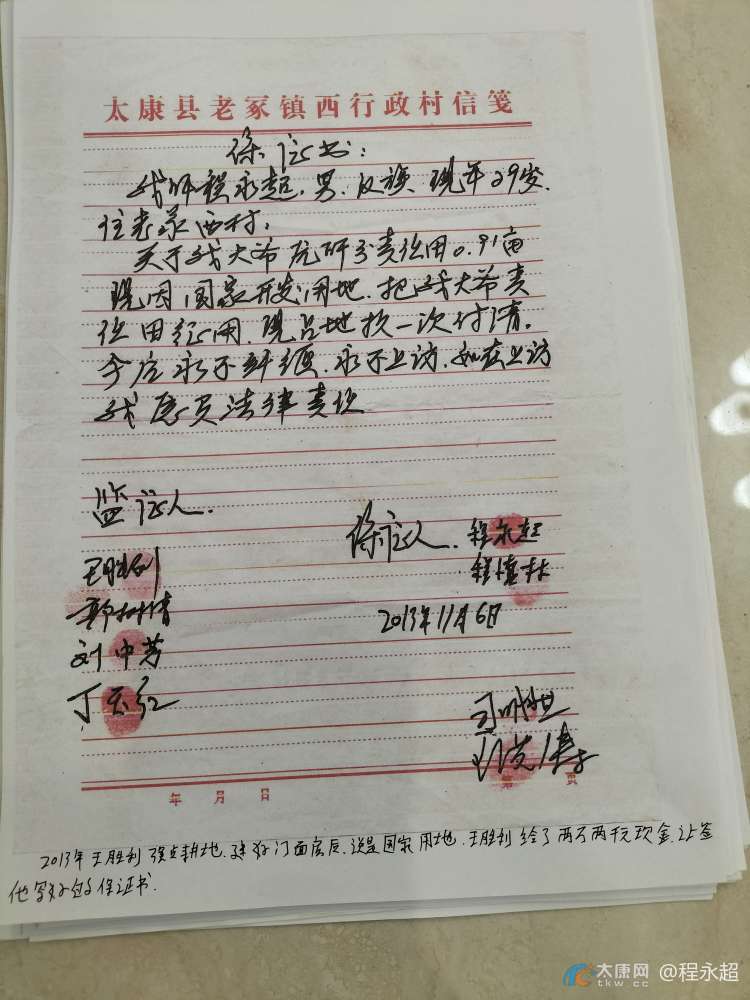 太康县老冢镇西行政村信笺
保证书:
我叫程永超,男,汉族,现年29岁,
住老冢西村,
关于我大爷 所分责任田0.91亩
现因国家开发用地,把我大爷责
任田征用,现占地款一次付清,
今后永不纠缠,永不上访,如在上访
我愿负法律责任
监证人.
保证人. 程永超
王胜利
刘中芳
2013年11月6日
丁云红
年 月 日
第 页
2013年王胜利强占耕地,建好门面房后,说是国家用地,王胜利给了两万两千元现金,让签
他写好的保证书.
太康网
tkw.cc
@程永超